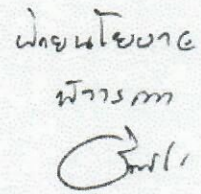 ฝ่ายนโยบาย
พิจารณา